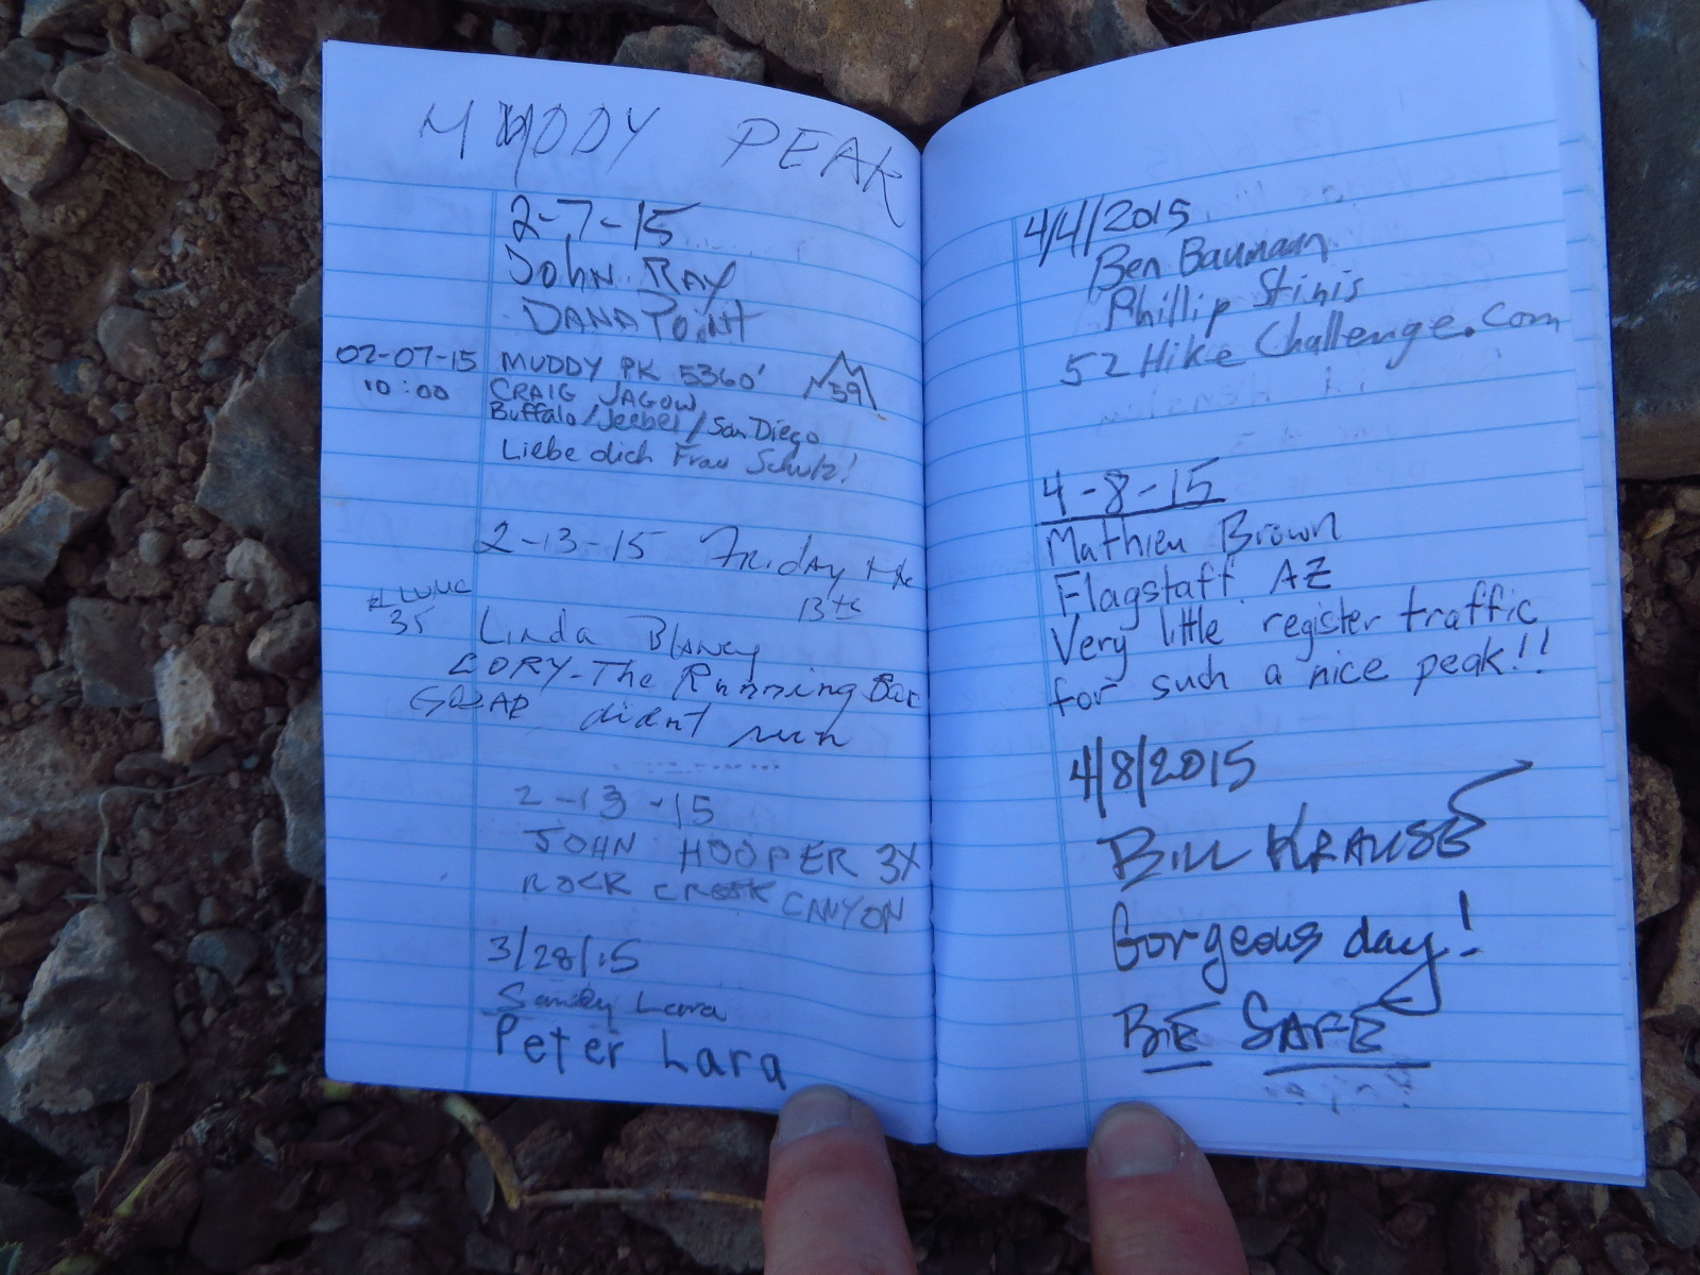 MUDDY PEAK
2-7-15
John Ray
Dana Point
02-07-15 MUDDY PK 5360' 59
10:00 CRAIG JAGOW
Buffalo/Jeebei/San Diego
Liebe dich Frau Schulz!
2-13-15 Friday the
13th
35 Linda Blaney
CORY-The Running Bear
didnt run
2-13-15
JOHN HOOPER 3X
ROCK CREEK CANYON
3/28/15
Sandy Lara
Peter Lara
4/4/2015
Ben Baumann
Phillip Stinis
52 Hike Challenge.com
4-8-15
Mathieu Brown
Flagstaff AZ
Very little register traffic
for such a nice peak!!
4/8/2015
BILL KRAUSE
Gorgeous day!
BE SAFE